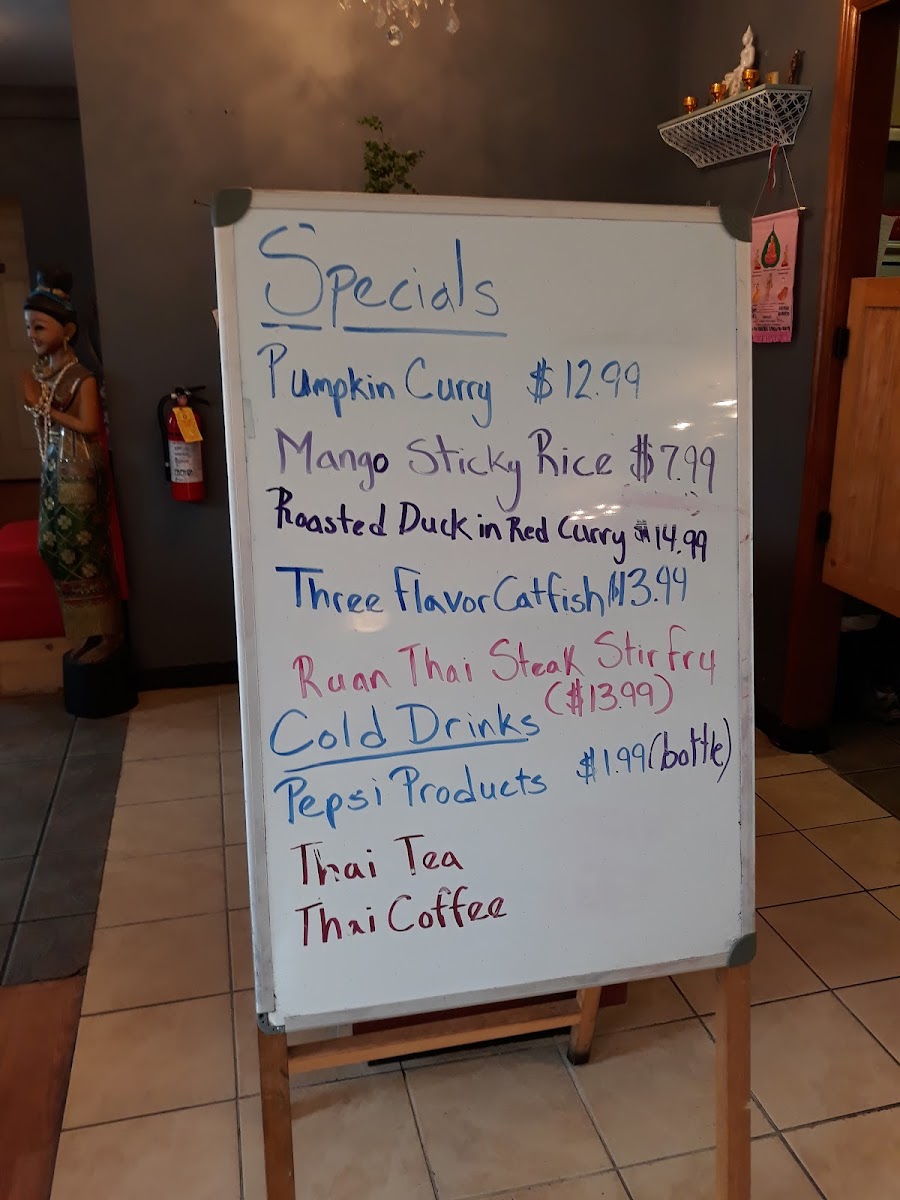 Specials
Pumpkin Curry $12.99
Mango Sticky Rice $7.99
Roasted Duck in Red Curry $14.99
Three Flavor Catfish $13.99
Ruan Thai Steak Stir fry
($13.99)
Cold Drinks
Pepsi Products $1.99 (bottle)
Thai Tea
Thai Coffee